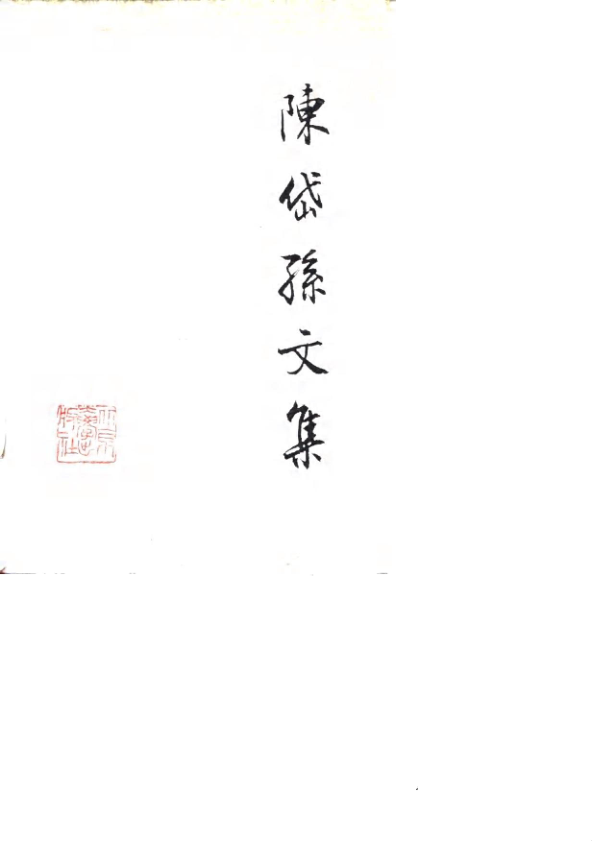 陳岱孫文集